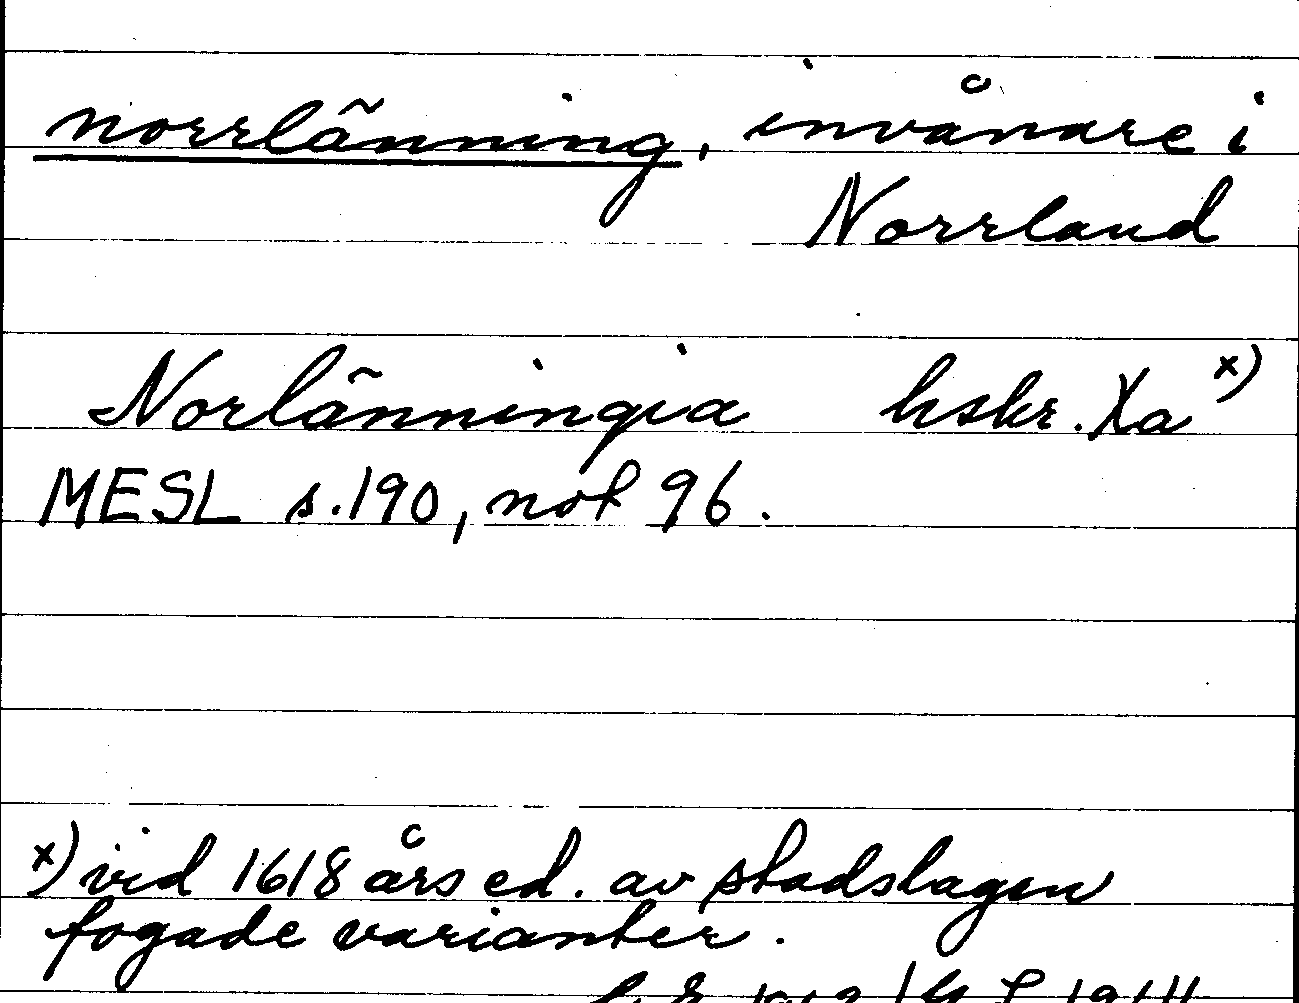 norrlänning, invånare i
Norrland
Norlänningia hskr. Xa x)
MESL s. 190, not 96.
x) vid 1618 års ed. av stadslagen
fogade varianter.